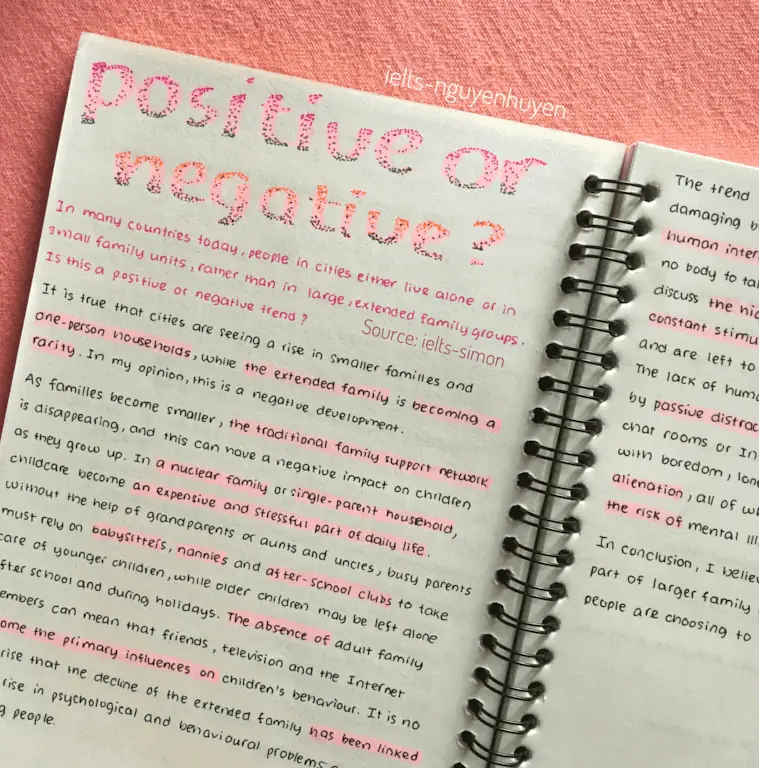 ielts-nguyenhuyen
positive or
negative?
In many countries today, people in cities either live alone or in
small family units, rather than in large, extended family groups.
Is this a positive or negative trend?
Source: ielts-simon
It is true that cities are seeing a rise in smaller families and
one-person households, while the extended family is becoming a
rarity. In my opinion, this is a negative development.
As families become smaller, the traditional family support network
is disappearing, and this can have a negative impact on children
as they grow up. In a nuclear family or single-parent household,
childcare become an expensive and stressful part of daily life.
without the help of grandparents or aunts and uncles, busy parents
must rely on babysitters, nannies and after-school clubs to take
care of younger children, while older children may be left alone
after school and during holidays. The absence of adult family
embers can mean that friends, television and the Internet
ome the primary influences on children's behaviour. It is no
rise that the decline of the extended family has been linked
rise in psychological and behavioural problems
g people.
The trend
damaging b
human inter
no body to ta
discuss the hi
constant stimu
and are left to
The lack of huma
by passive distrac
chat rooms or In
with boredom, lone
alienation, all of w
the risk of mental ill
In conclusion, I believ
part of larger family
people are choosing to